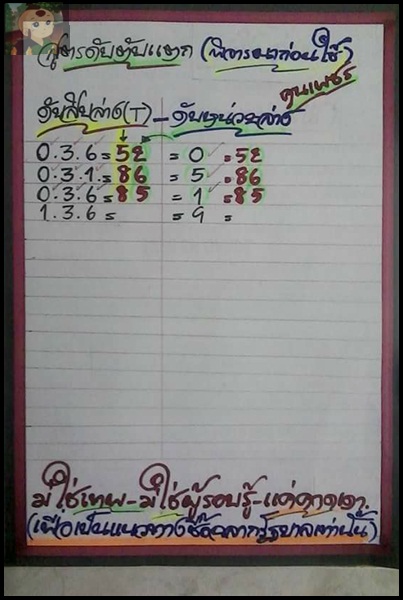 สูตรดับตับแตก (พิจารณาก่อนใช้)
คุณเพชร
ดับสิบล่าง(T) - ดับหน่วยล่าง
0.3.6 = 52 = 0 = 52
0.3.1. = 86 = 5 = 86
0.3.6 = 85 = 1 = 85
1.3.6 = = 9 =
มิใช่เทพ-มิใช่ผู้รอบรู้-แค่คาดเดา.
(เพื่อเป็นแนวทางซื้อฉลากรัฐบาลเท่านั้น)